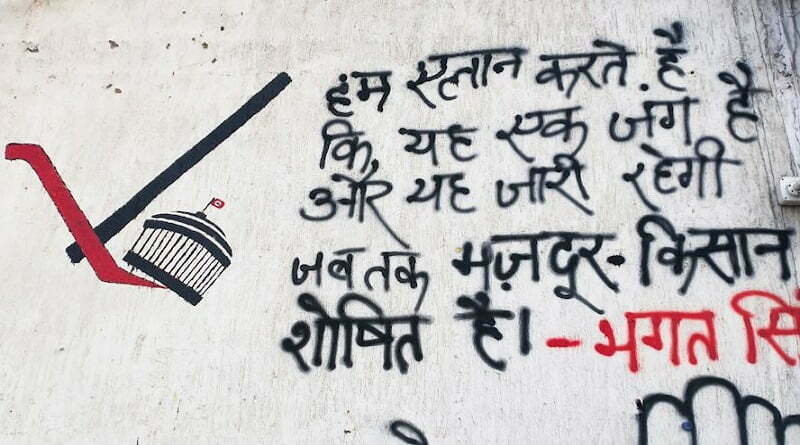 हम एलान करते है
कि, यह एक जंग है
और यह जारी रहेगी
जब तक मज़दूर-किसान
शोषित है। - भगत